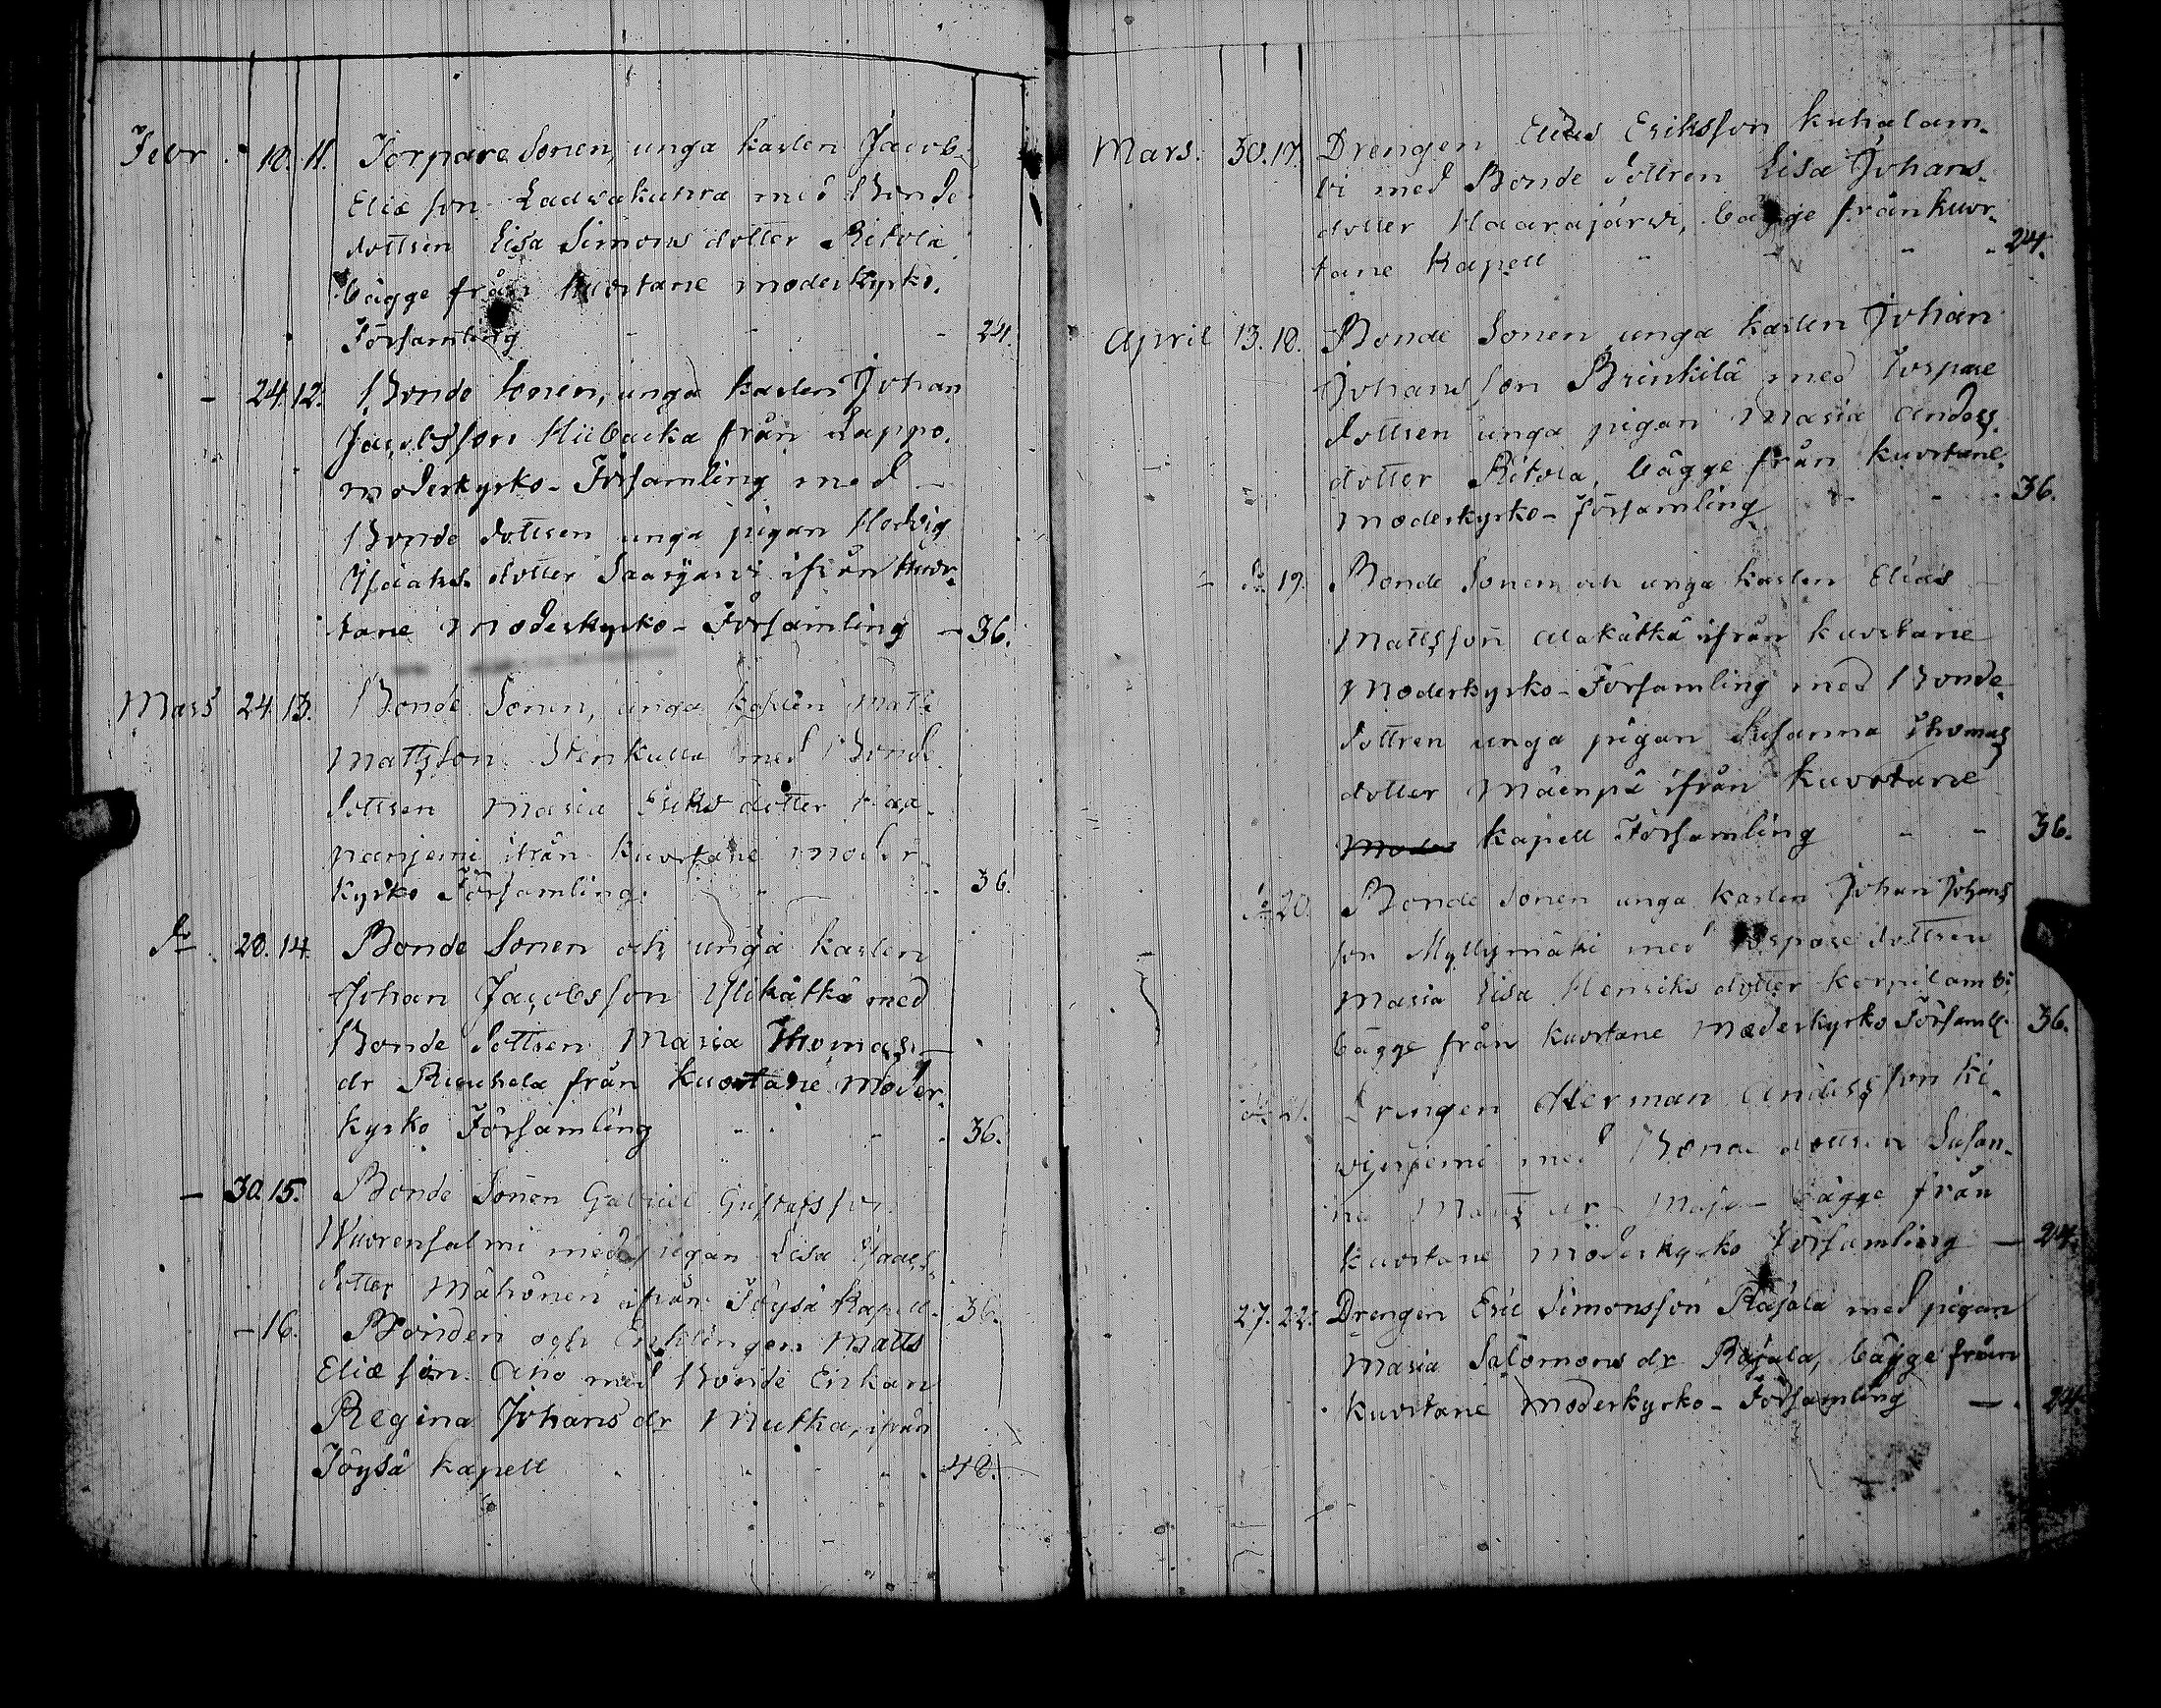 Febr. 10. 11. Torpare Sonen, unga karlen Jacob
Eliæ son Ladvakuhra med Bonde
dottren Lisa Simons dotter Ritola
bägge från Kuortane moderkyrko.
Församling - - - 24.
- 24. 12. Bonde Sonen, unga karlen Johan
Jacobsson Hiibacka från Lappo.
moderkyrko- Församling med -
Bonde dottren unga pigan Hedvig
Isaaks dotter Saarijarvi ifrån Kuor-
tane Moderkyrko- Församling - 36.
Mars 24. 13. Bonde Sonen, unga karlen Matts
Mattsson Stenkulla med Bonde
dottren Maria Eriks dotter Haa-
panjemi ifrån Kuortane moder-
kyrko Församling. - - 36.
do 28. 14. Bonde Sonen och unga karlen
Johan Jacobsson Ylikätkä med
Bonde dottren Maria Thomas-
dr Ruuhela från Kuortane Moder-
kyrko Församling - - - 36.
- 30. 15. Bonde Sonen Gabriel Gustafsson
Wuorensalmi med pigan Lisa Isaacs
dotter Mähönen ifrån Töysä Kapell. 36.
- 16. Bonden och Enklingen Matts
Eliæ son Aho med Bonde Enkan
Regina Johans dr Mutka, ifrån
Töysä kapell - - - 48.
Mars. 30. 17. Drengen Elias Eriksson kuhalam-
bi med Bonde dottren Lisa Johans-
dotter Haarajärvi, bägge från kuor-
tane Kapell - - - 24.
April 13. 18. Bonde Sonen unga karlen Johan
Johansson Brinkilä med Torpare
dottren unga pigan Maria Anders
dotter Ritola, bägge från kuortane
moderkyrko- församling - - 36.
- do 19. Bonde Sonen och unga karlen Elias
Mattsson Alakätkä ifrån kuortane
Moderkyrko- Församling med Bonde
dottren unga pigan Susanna Thomas
dotter Mäenpä ifrån Kuortane
Moder Kapell Församling - - 36.
do 20. Bonde Sonen unga karlen Johan Johans
son Myllymäki med Torpare dottren
Maria Lisa Henriks dotter Korpilambi,
bägge från Kuortane Moderkyrko Församl. 36.
do 21. Drengen Herman Andersson Ki-
vinjemi med Bonde dottren Susan-
na Matts dr bägge från
Kuortane moderkyrko Församling - 24.
27. 22. Drengen Eric Simonsson Rajala med pigan
Maria Salomons dr Rajala, bägge från
Kuortane Moderkyrko- Församling - 24.